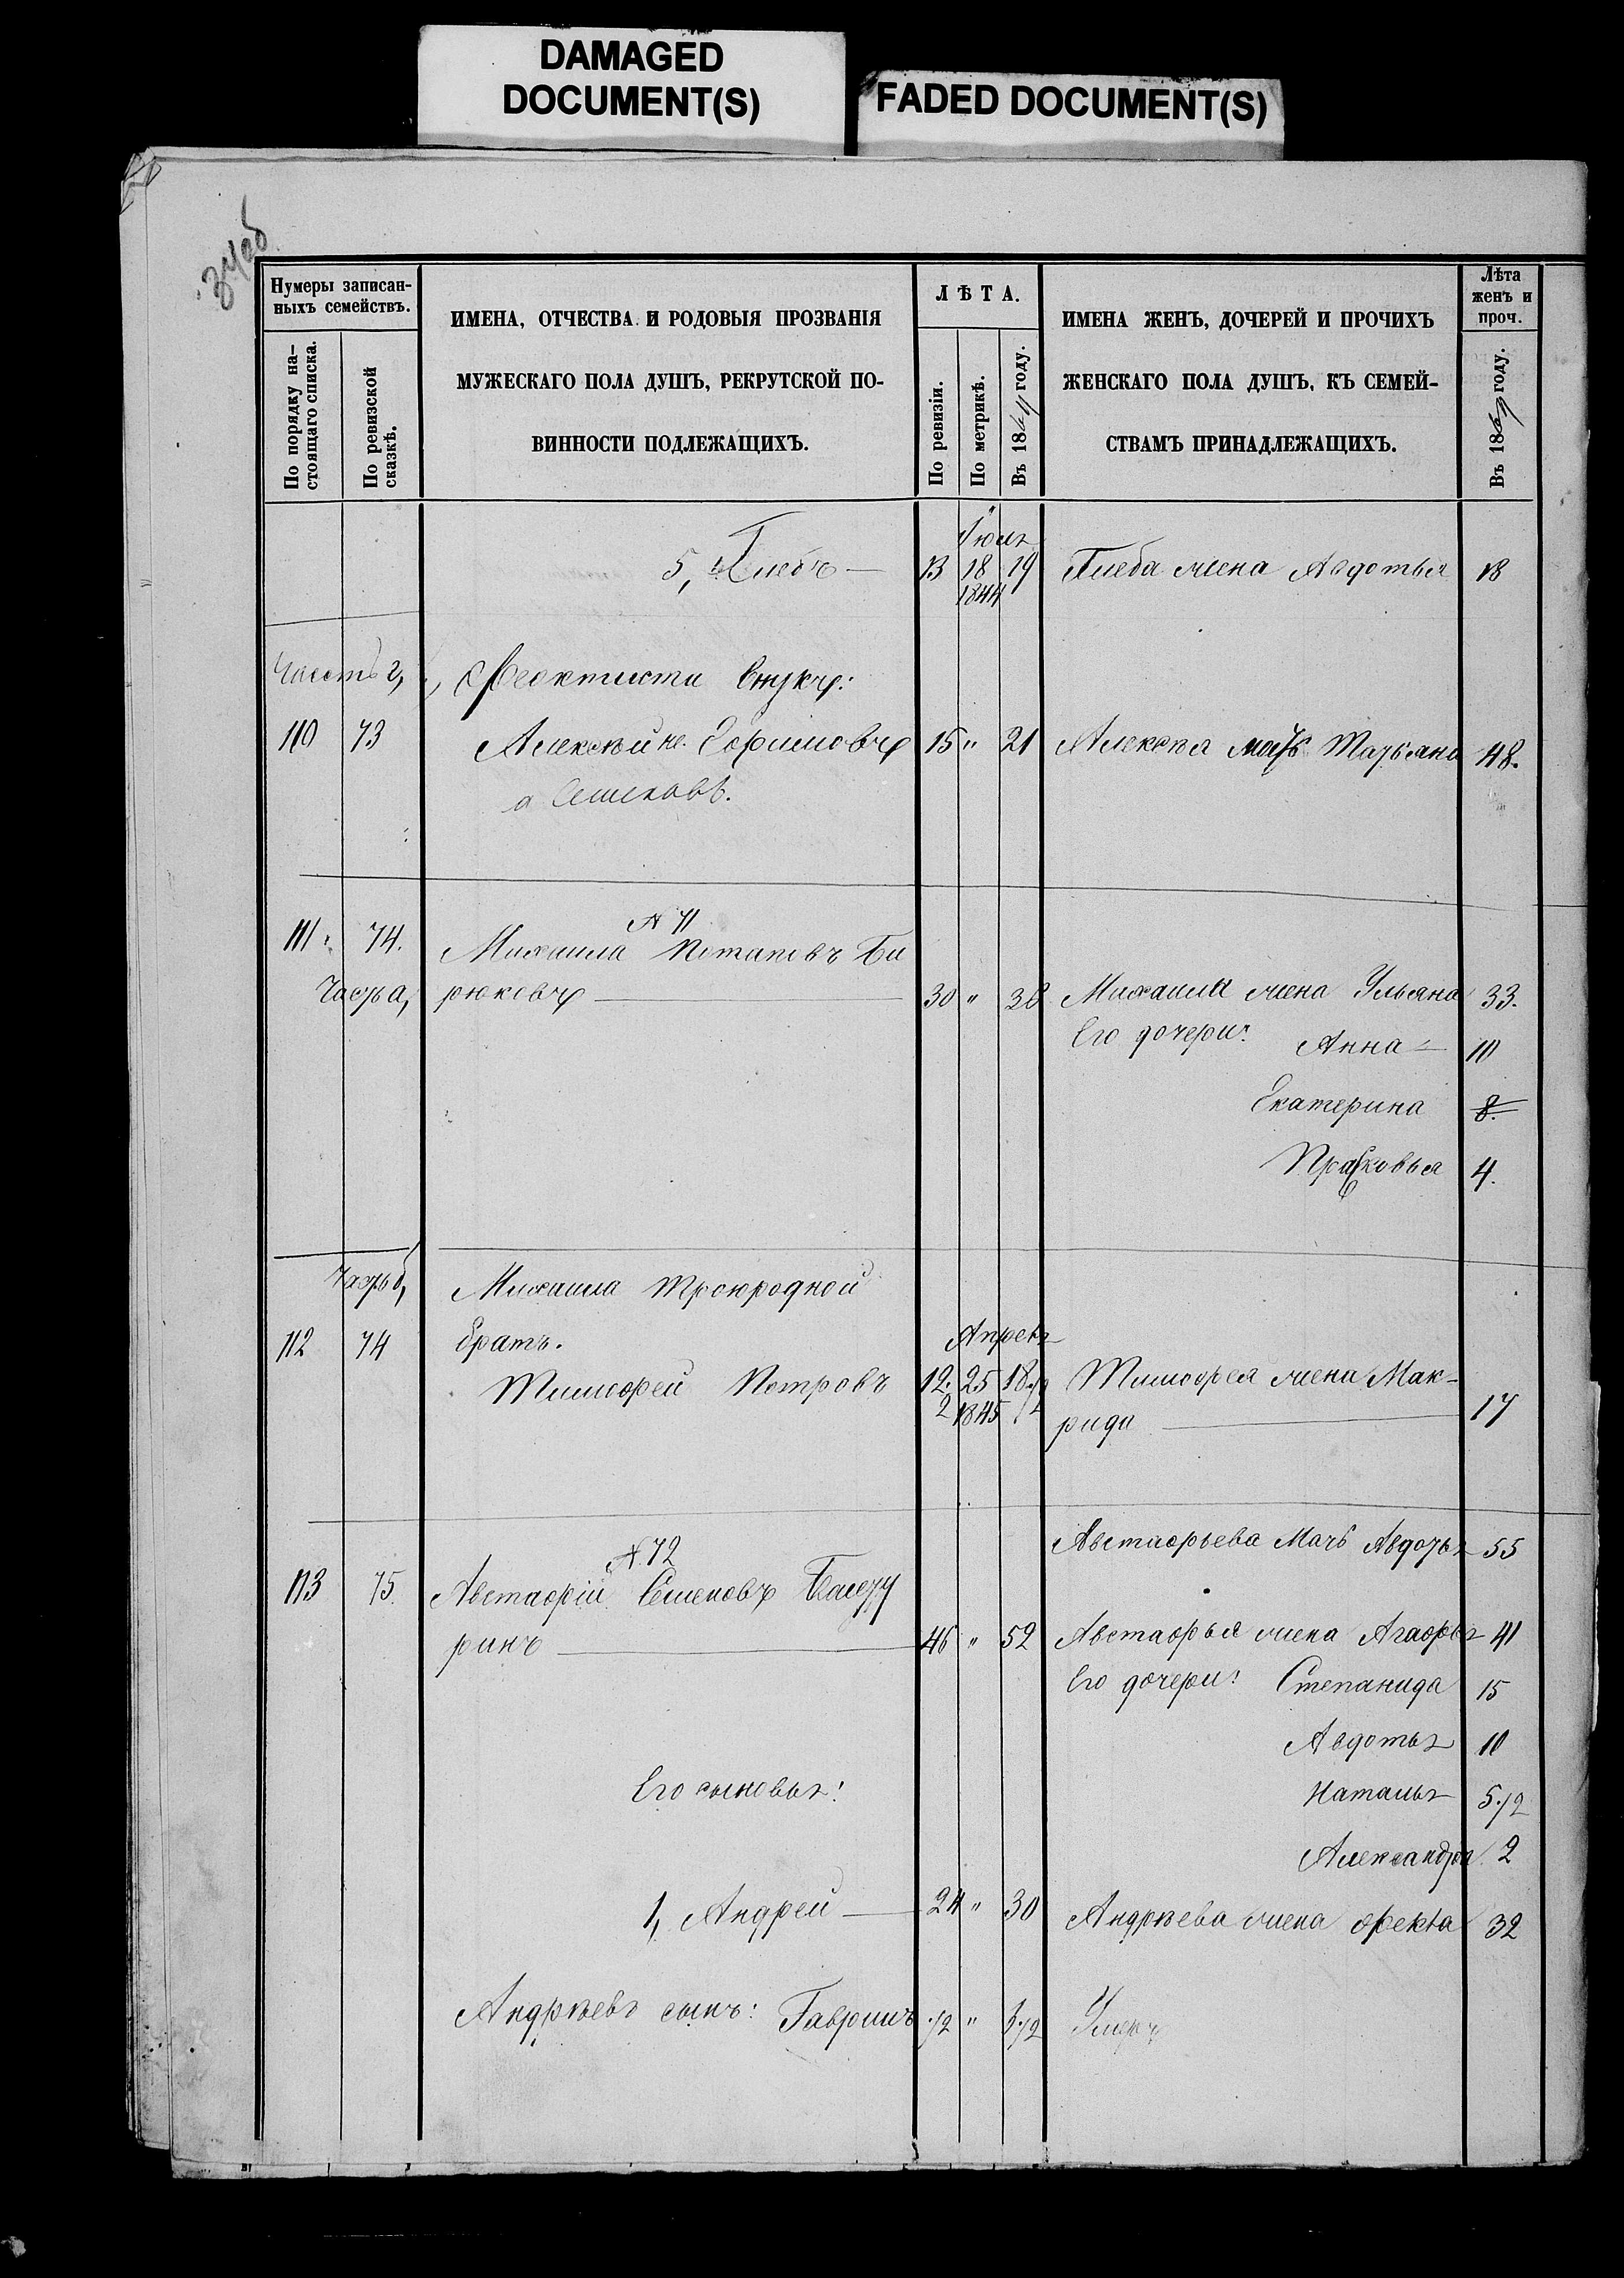 DAMAGED
DOCUMENT(S)
FADED DOCUMENT(S)
34об
Нумеры записан-
ныхъ семействъ.
По порядку на-
стоящаго списка.
По ревизской
сказкѣ.
ИМЕНА, ОТЧЕСТВА И РОДОВЫЯ ПРОЗВАНІЯ
МУЖЕСКАГО ПОЛА ДУШЪ, РЕКРУТСКОЙ ПО-
ВИННОСТИ ПОДЛЕЖАЩИХЪ.
ЛѢТА.
По ревизіи.
По метрикѣ.
Въ 18 году.
ИМЕНА ЖЕНЪ, ДОЧЕРЕЙ И ПРОЧИХЪ
ЖЕНСКАГО ПОЛА ДУШЪ, КЪ СЕМЕЙ-
СТВАМЪ ПРИНАДЛЕЖАЩИХЪ.
Лѣта
женъ и
проч.
Въ 18 году.
Іюля
5, Глебъ — 13 18 19 Глеба жена Авдотья 18
1844
Часть 2, Феоктиста внукъ:
110 73 Алексѣй не Ефимовъ 15 " 21 Алексѣя мать Татьяна 48.
а Семеновъ.
№ 71
111. 74. Михаила Потаповъ Би
Часть а, рюковъ — 30 " 36 Михаилы жена Ульяна 33.
Его дочери: Анна — 10
Екатерина 8.
Прасковья 4.
Часть б, Михаила троюродной
112 74 братъ. Апреля
Тимофей Петровъ 12. 25 18./2 Тимофея жена Мак-
2 1845 /2 рида — 17
Австафьева Мать Авдотья 55
№ 72
113 75. Австафій Семеновъ
ринъ — 46 " 52 Австафья жена Агафья 41
Его дочери: Степанида 15
Авдотья 10
Его сыновья: Наталья 5./2
Александра 2
1, Андрей — 24 " 30 Андрѣева жена Фекла 32
Андрѣевъ сынъ: Гаврилъ ./2 " Умеръ